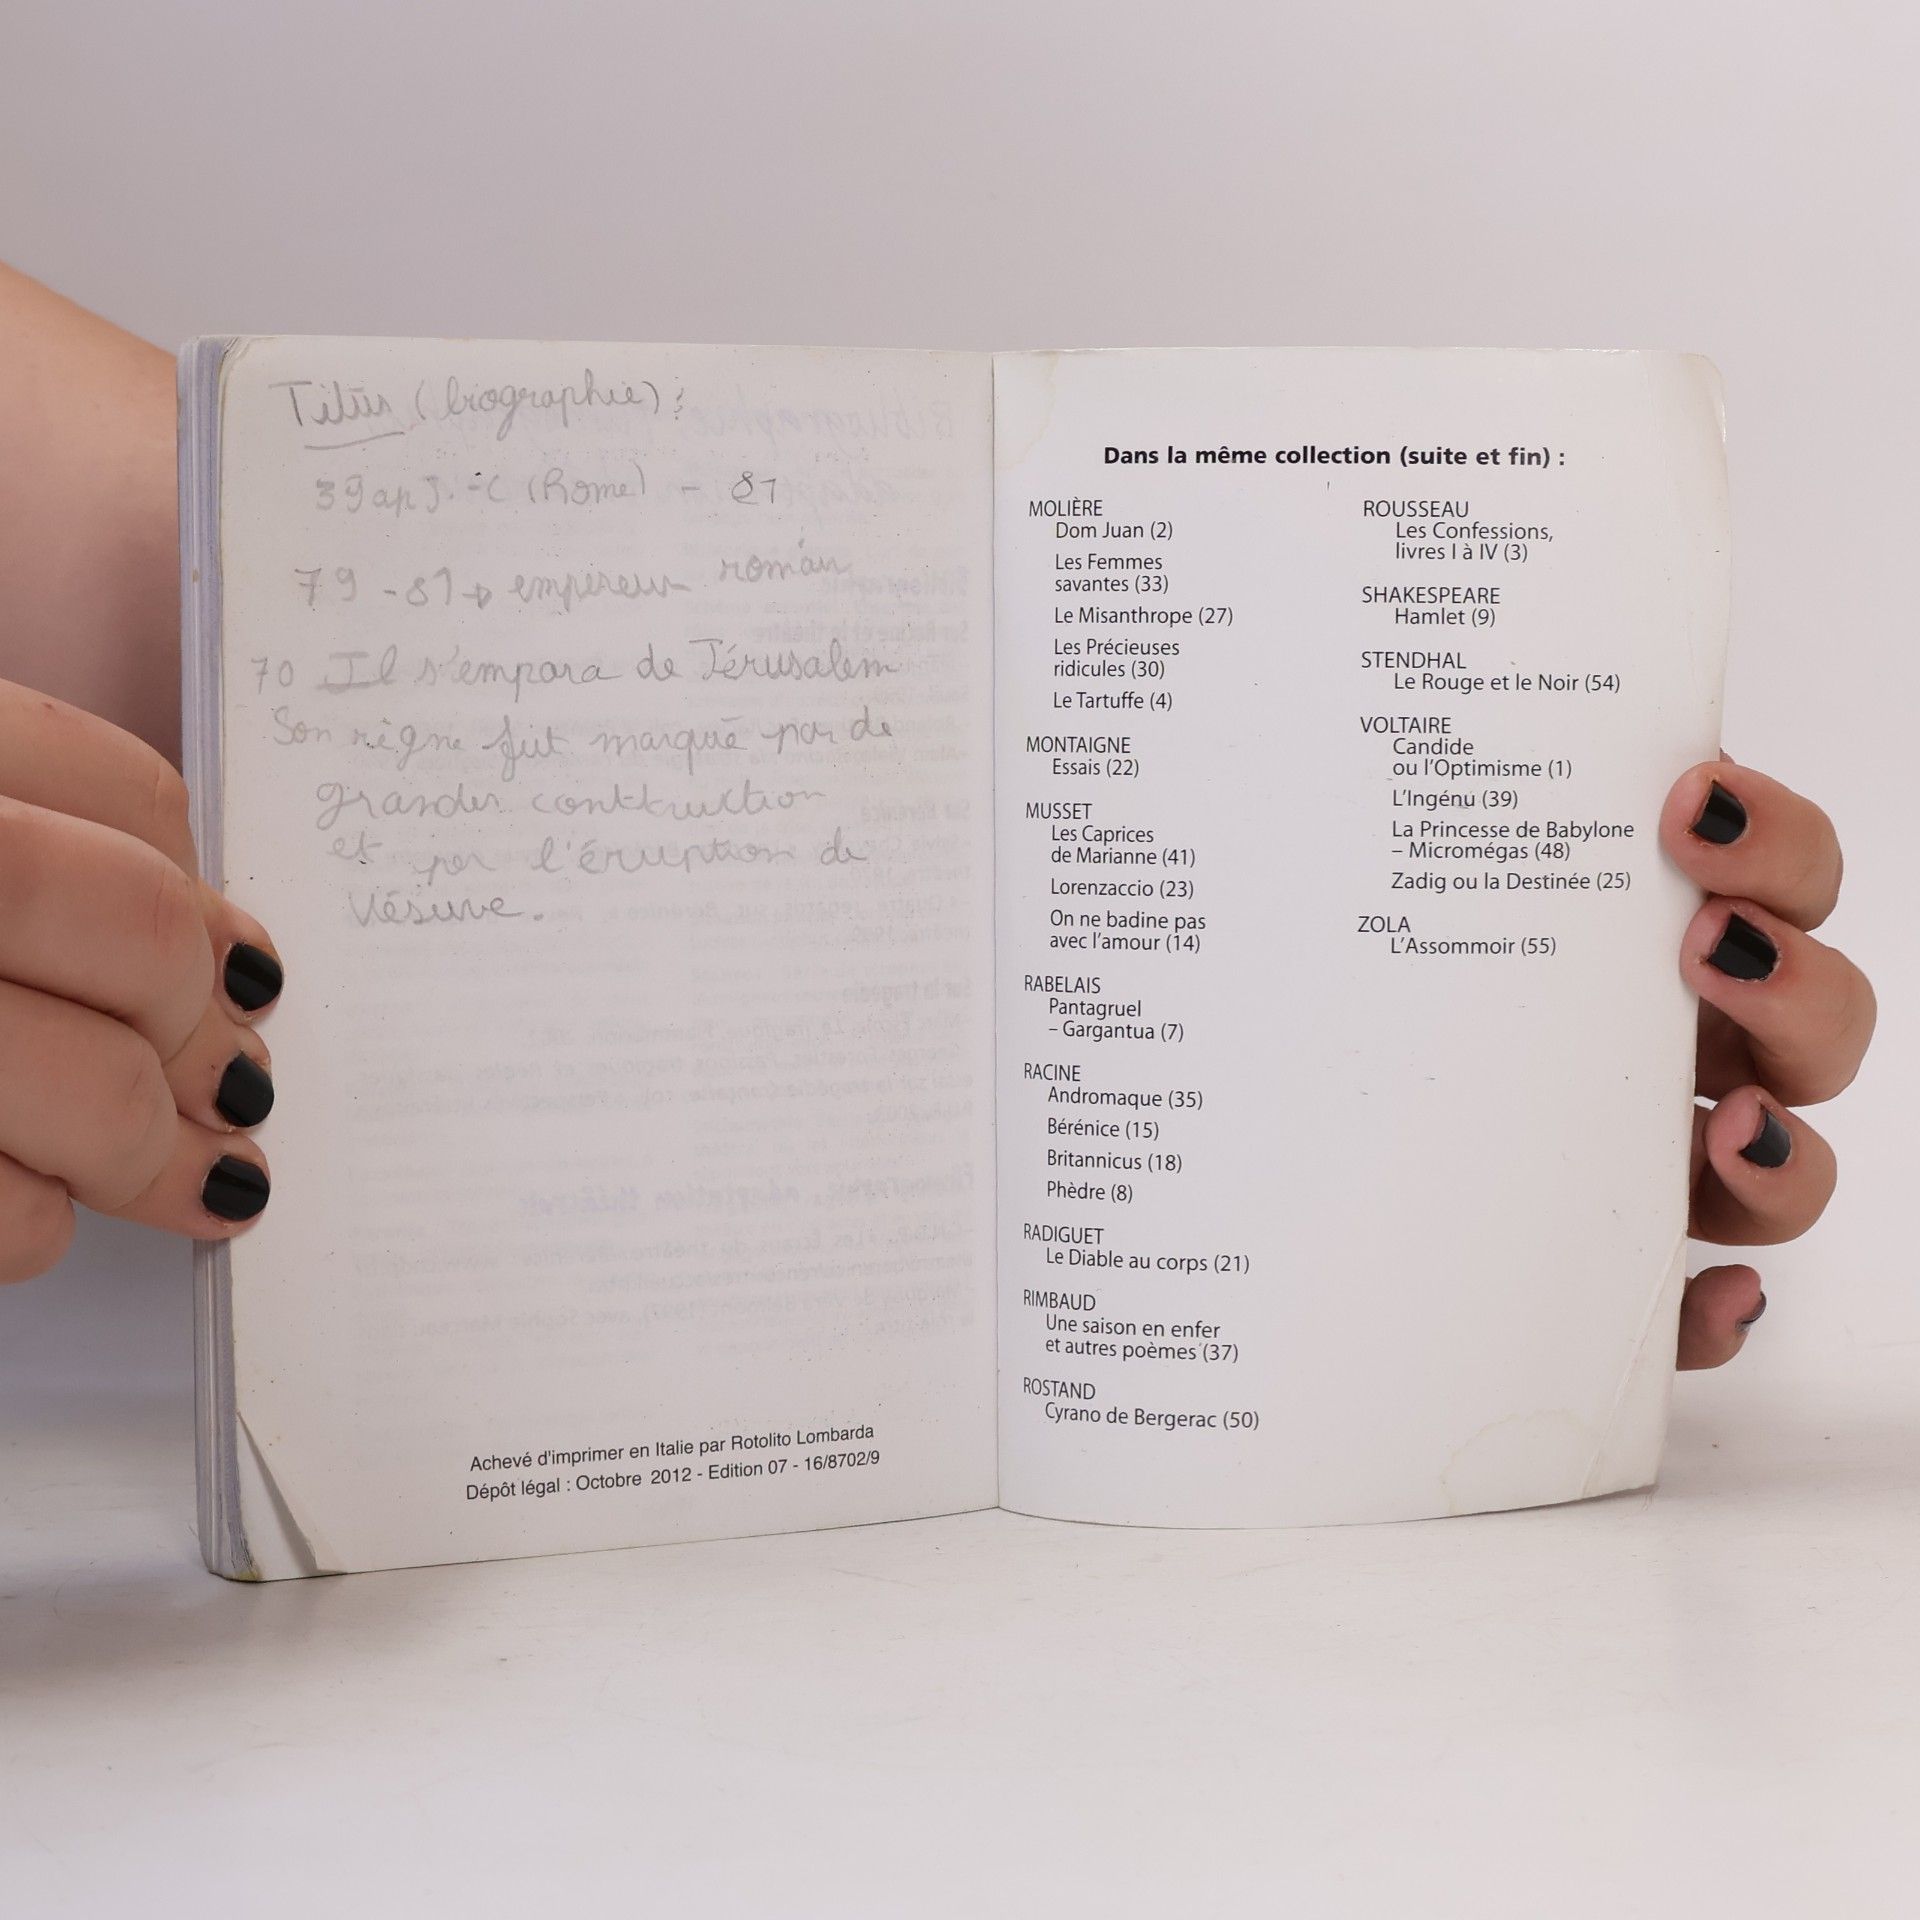 Titus (biographie) :
39 ap J.-C (Rome) - 81
79 - 81 → empereur romain
70 Il s'empara de Jérusalem
Son règne fut marqué par de
grandes contruction
et par l'éruption de
Vésuve.
Achevé d'imprimer en Italie par Rotolito Lombarda
Dépôt légal : Octobre 2012 - Edition 07 - 16/8702/9
Dans la même collection (suite et fin) :
MOLIÈRE
Dom Juan (2)
Les Femmes
savantes (33)
Le Misanthrope (27)
Les Précieuses
ridicules (30)
Le Tartuffe (4)
MONTAIGNE
Essais (22)
MUSSET
Les Caprices
de Marianne (41)
Lorenzaccio (23)
On ne badine pas
avec l'amour (14)
RABELAIS
Pantagruel
– Gargantua (7)
RACINE
Andromaque (35)
Bérénice (15)
Britannicus (18)
Phèdre (8)
RADIGUET
Le Diable au corps (21)
RIMBAUD
Une saison en enfer
et autres poèmes (37)
ROSTAND
Cyrano de Bergerac (50)
ROUSSEAU
Les Confessions,
livres I à IV (3)
SHAKESPEARE
Hamlet (9)
STENDHAL
Le Rouge et le Noir (54)
VOLTAIRE
Candide
ou l'Optimisme (1)
L'Ingénu (39)
La Princesse de Babylone
– Micromégas (48)
Zadig ou la Destinée (25)
ZOLA
L'Assommoir (55)